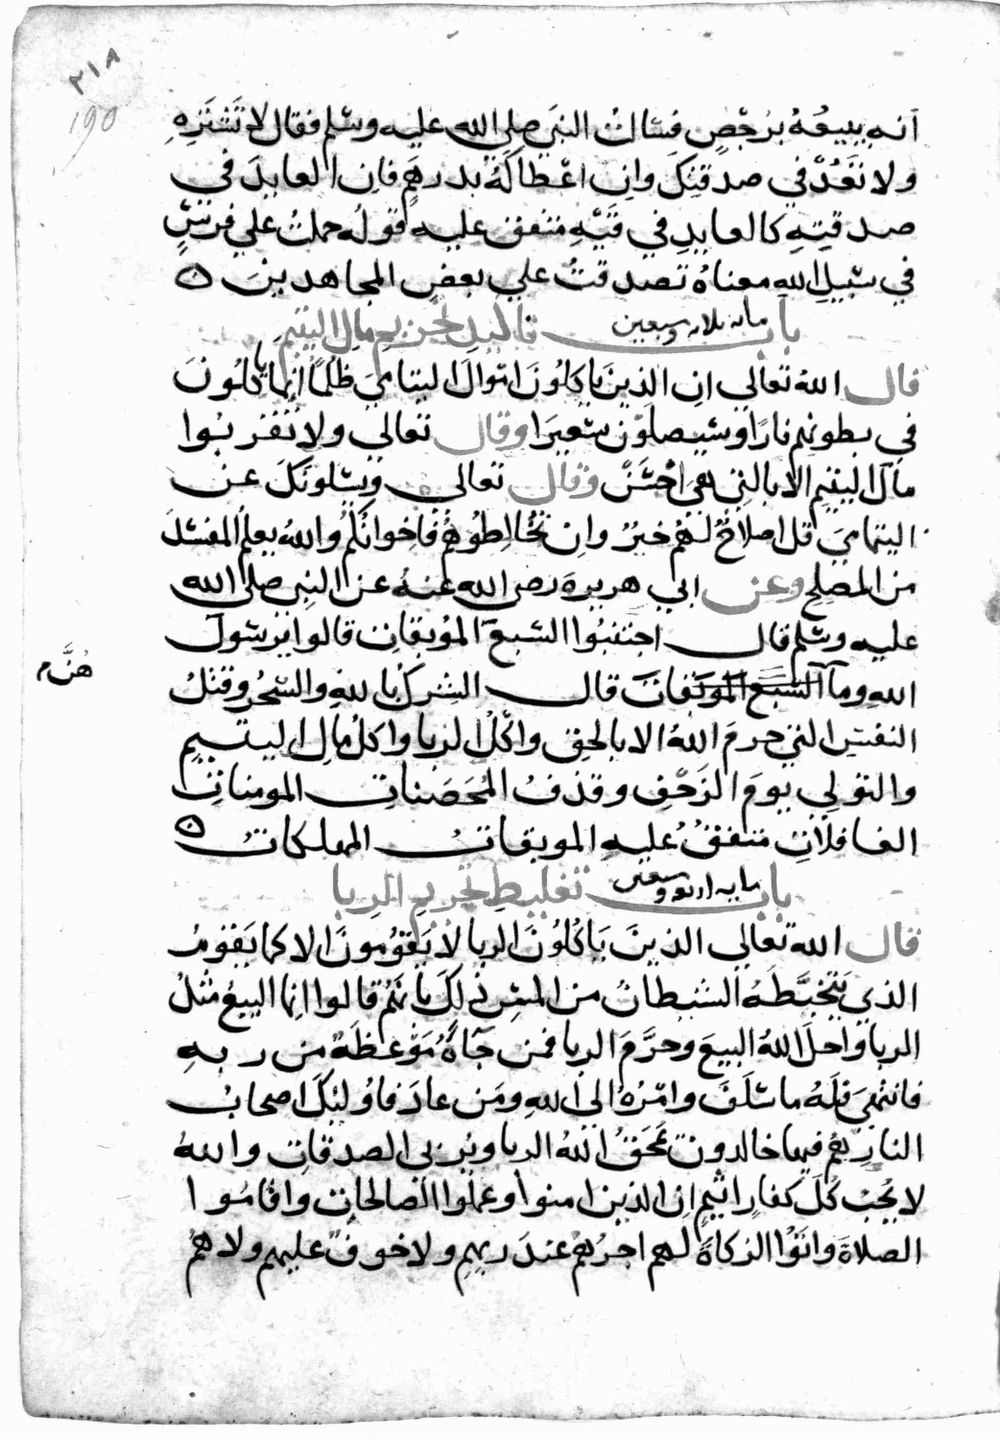 ٢١٨
190
أنه يبيعُهُ برُخْصٍ فسَالتُ النبي صلى الله عليه وسلم فقال لا تَشْتَرِهِ
ولا تَعُدْ في صدقتِكَ وإن اعْطاكَهُ بدرهمٍ فان العايدَ في
صدقتِهِ كالعايدِ في قَيْئهِ متفق عليه قوله حملتُ علي فرسٍ
في سَبيلِ اللهِ معناهُ تصدقتُ علي بعضِ المجاهدينَ
باب مايه ثلاثه وسبعين تاكيد تحريم مال اليتيم
قال اللهُ تعالي ان الذينَ ياكلُونَ اموالَ اليتامَي ظلمًا انما ياكلُونَ
في بطونهم نارًا وسَيصلوْن سَعيرًا وقال تعالي ولا تقربُوا
مالَ اليتيمِ الا بالتي هيَ احْسَنُ وقال تعالى ويسْلونَكَ عن
اليتامَي قل اصلاحٌ لهُم خيرٌ وان تخُالِطُوهُم فاخوانُكُم واللهُ يعلمُ المفسْدَ
من المصلحِ وعن ابي هريرةَ رضى الله عنهُ عن النبى صلى الله
عليه وسَلم قال اجتنبُوا السَّبعَ المُوبقاتِ قالوا يرسُولَ
اللهِ وما السَّبع الموبقات قال الشِركُ باللهِ والسِّحرُ وقتلُ
هُنَّ
النفسِ التي حرمَ اللهُ الا بالحقِ واكْلُ الربا واكلُ مالِ اليتيمِ
والتولِي يومَ الزَحْفِ وقذفُ المُحَصَناتِ المومناتِ
الغافلاتِ متفقٌ عليهِ الموبقاتُ المهلكاتُ
باب مايه اربعه وسبعين تغليظ تحريم الربا
قال الله تعالي الذينَ يَاكلُونَ الربا لا يَقومُونَ الا كما يَقومُ
الذي يَتخبَّطَهُ الشيطانُ من المسِّ ذلِكَ بأنهُم قالوا انما البيعُ مثلُ
الربا واحلَ اللهُ البيعَ وحرَّمَ الربا فمن جَآهُ مَوْعظَةٌ من ربهِ
فانتهَي فلَهُ ما سَلَفَ وامْرُهُ الى اللهِ ومَن عادَ فاوُلئِكَ اصحابُ
النارِ هُم فيها خالدون يَمحَقُ اللهُ الربا ويُربي الصدقاتِ واللهُ
لا يُحِبُ كُلَ كفارٍ اثيمٍ ان الذين امنوا وعملوا الصالحاتِ واقامُوا
الصلاةَ واتَوُا الزكاةَ لهم اجرُهُم عندَ ربهِم ولا خوفٌ عليهم ولا هُم